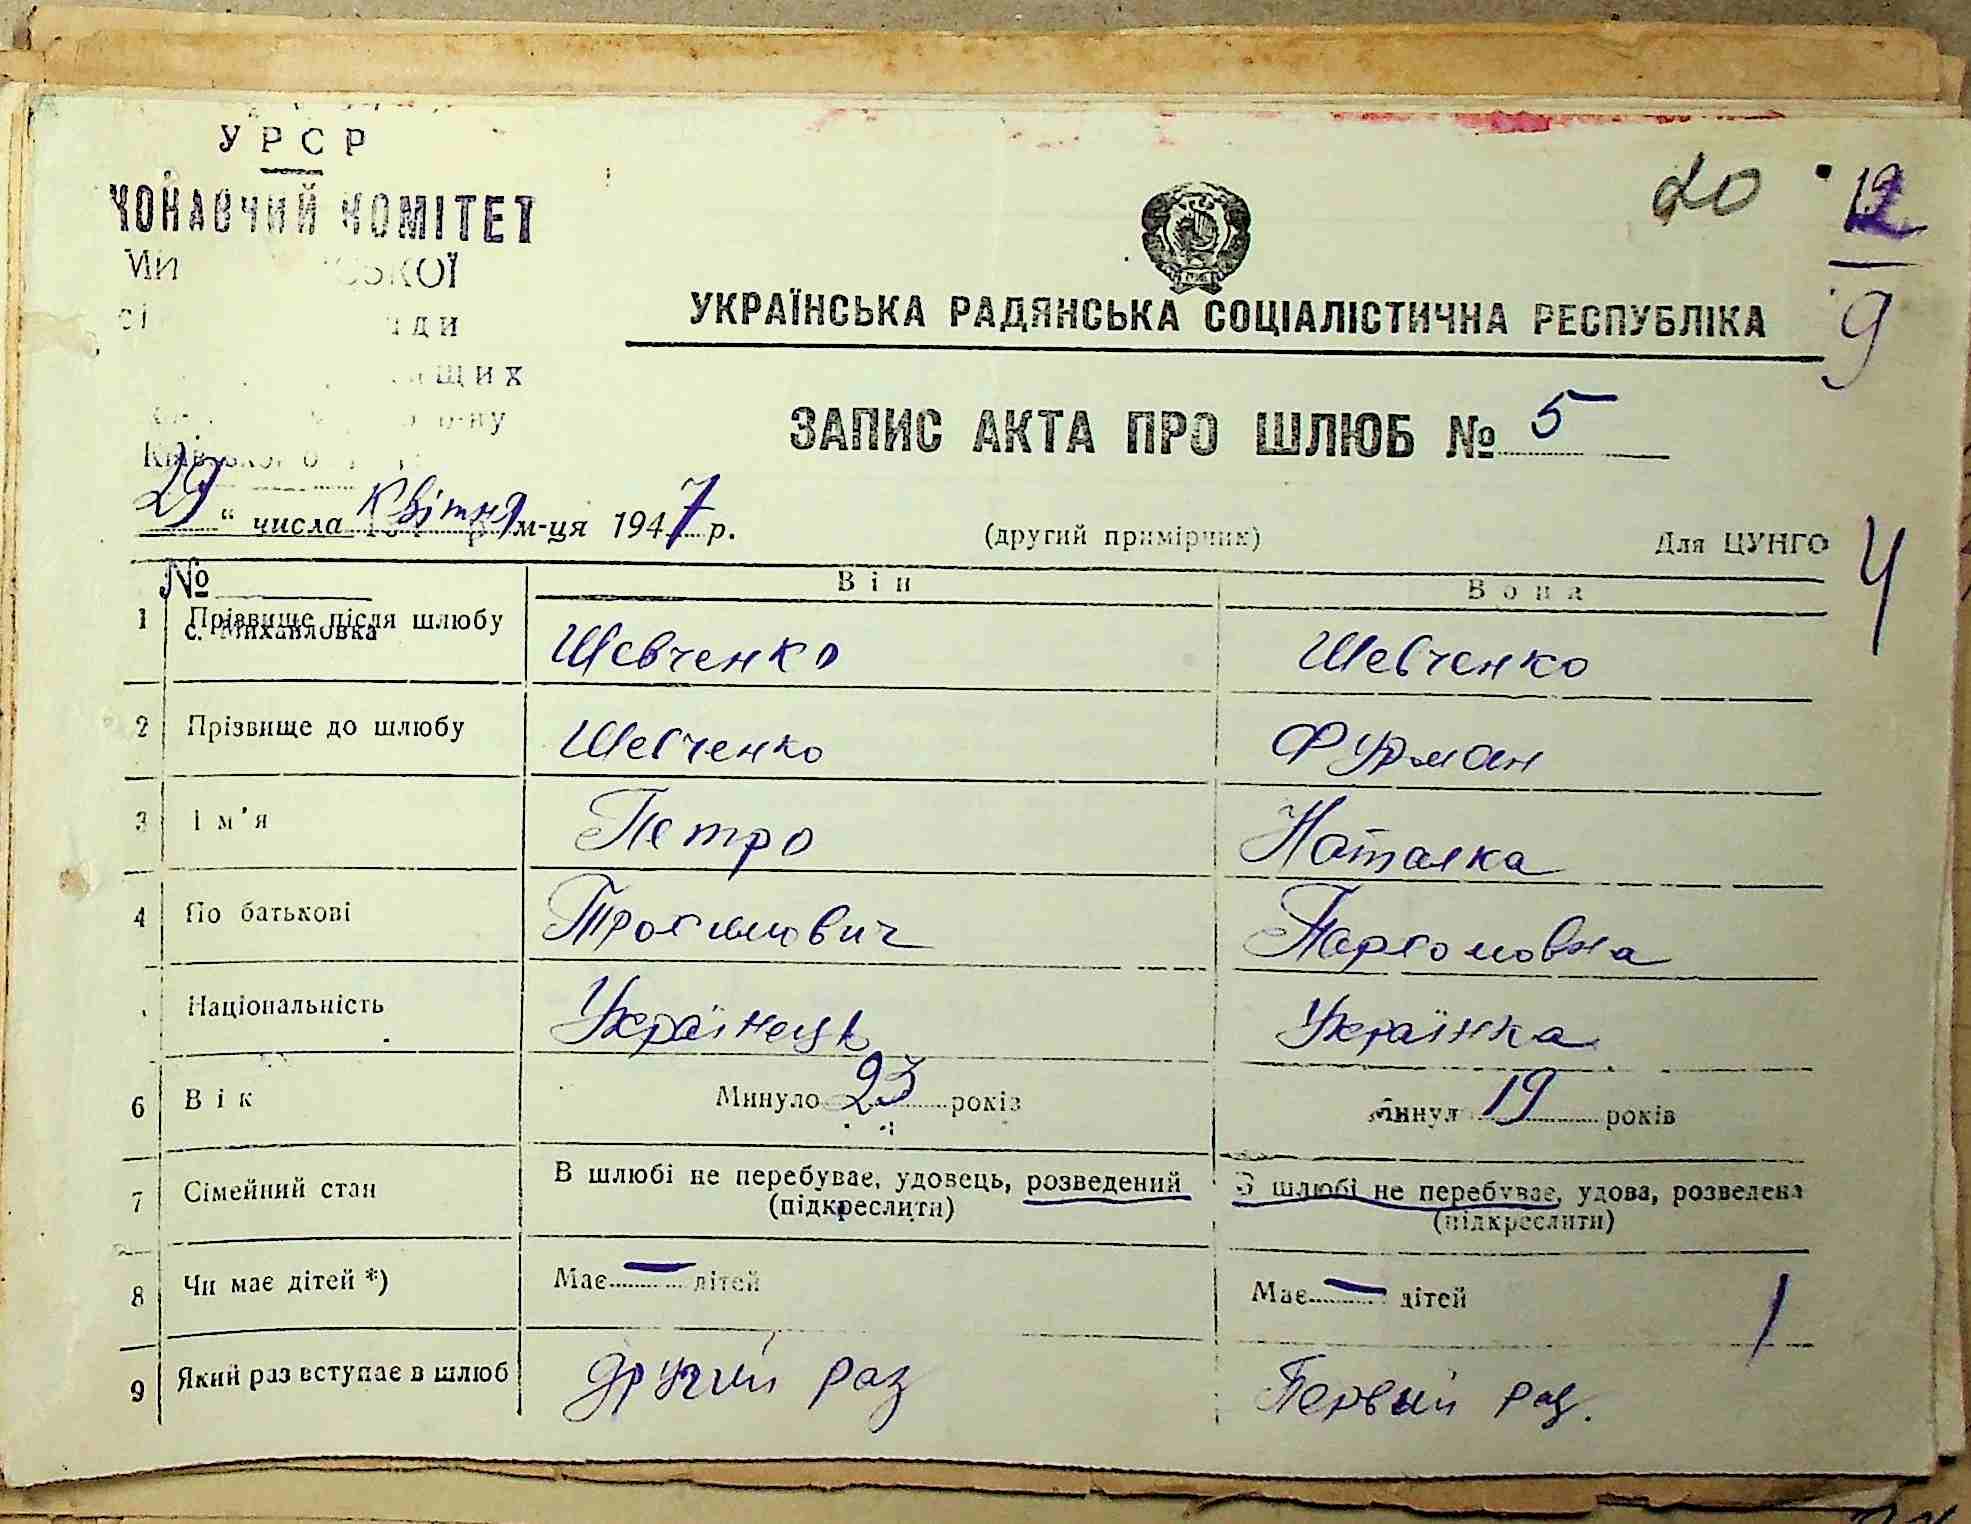 УРСР
КОНАВЧИЙ КОМІТЕТ
СЬКОЇ
ди
ищих
р-ну
20 12
9
УКРАЇНСЬКА РАДЯНСЬКА СОЦІАЛІСТИЧНА РЕСПУБЛІКА
ЗАПИС АКТА ПРО ШЛЮБ № 5
29 " числа Квітня м-ця 1947 р.
(другий примірник)
Для ЦУНГО
4
№
Він Вона
1 Прізвище після шлюбу Шевченко Шевченко
с. Михайловка
2 Прізвище до шлюбу Шевченко Фурман
3 Ім'я Петро Наталка
4 По батькові Трохимович Пархомовна
Національність Українець Українка
6 Вік Минуло 23 років Минул 19 років
7 Сімейний стан В шлюбі не перебуває, удовець, розведений В шлюбі не перебуває, удова, розведена
(підкреслити) (підкреслити)
8 Чи має дітей *) Має — дітей Має — дітей
9 Який раз вступає в шлюб другий раз Первий раз.